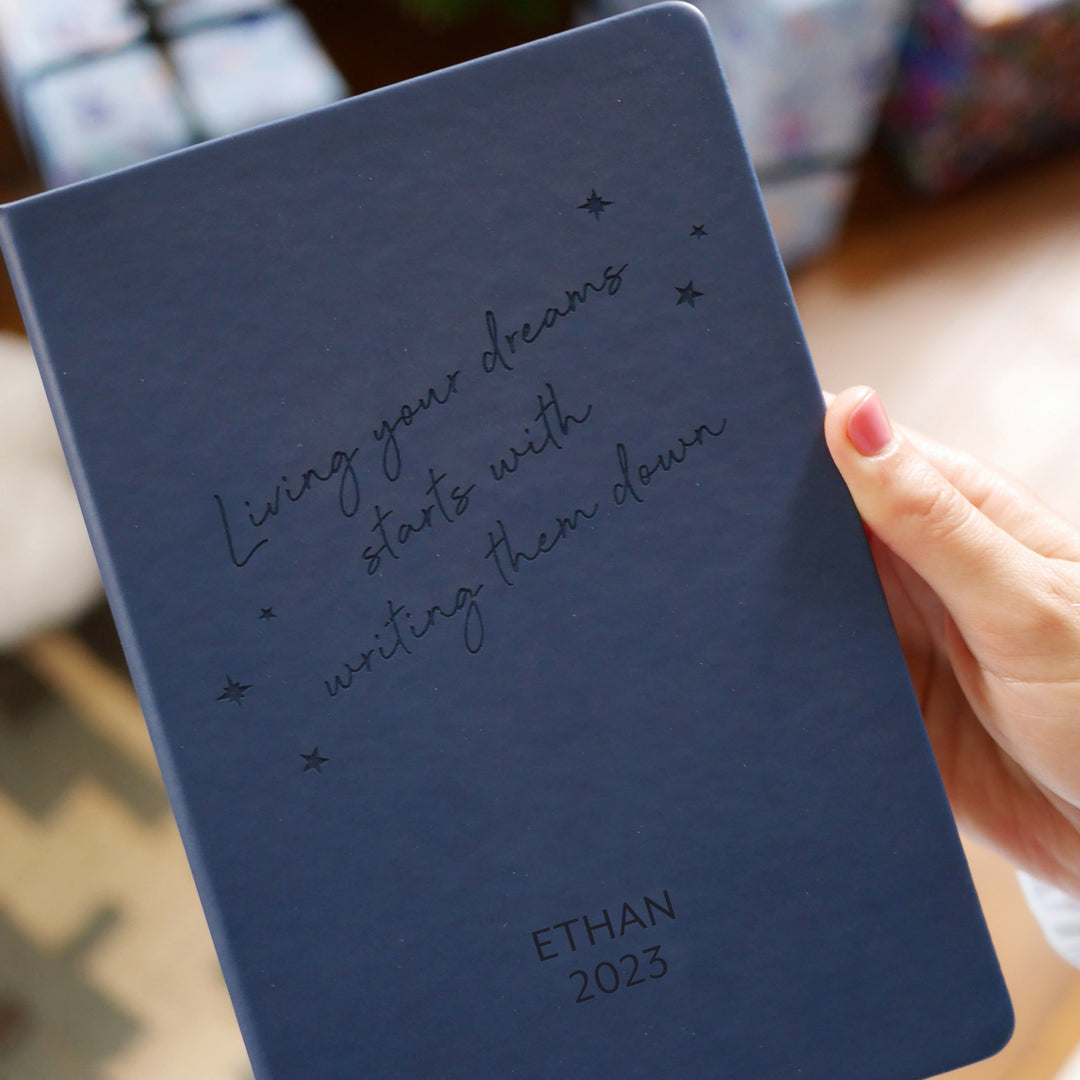 Living your dreams
starts with
writing them down
ETHAN
2023